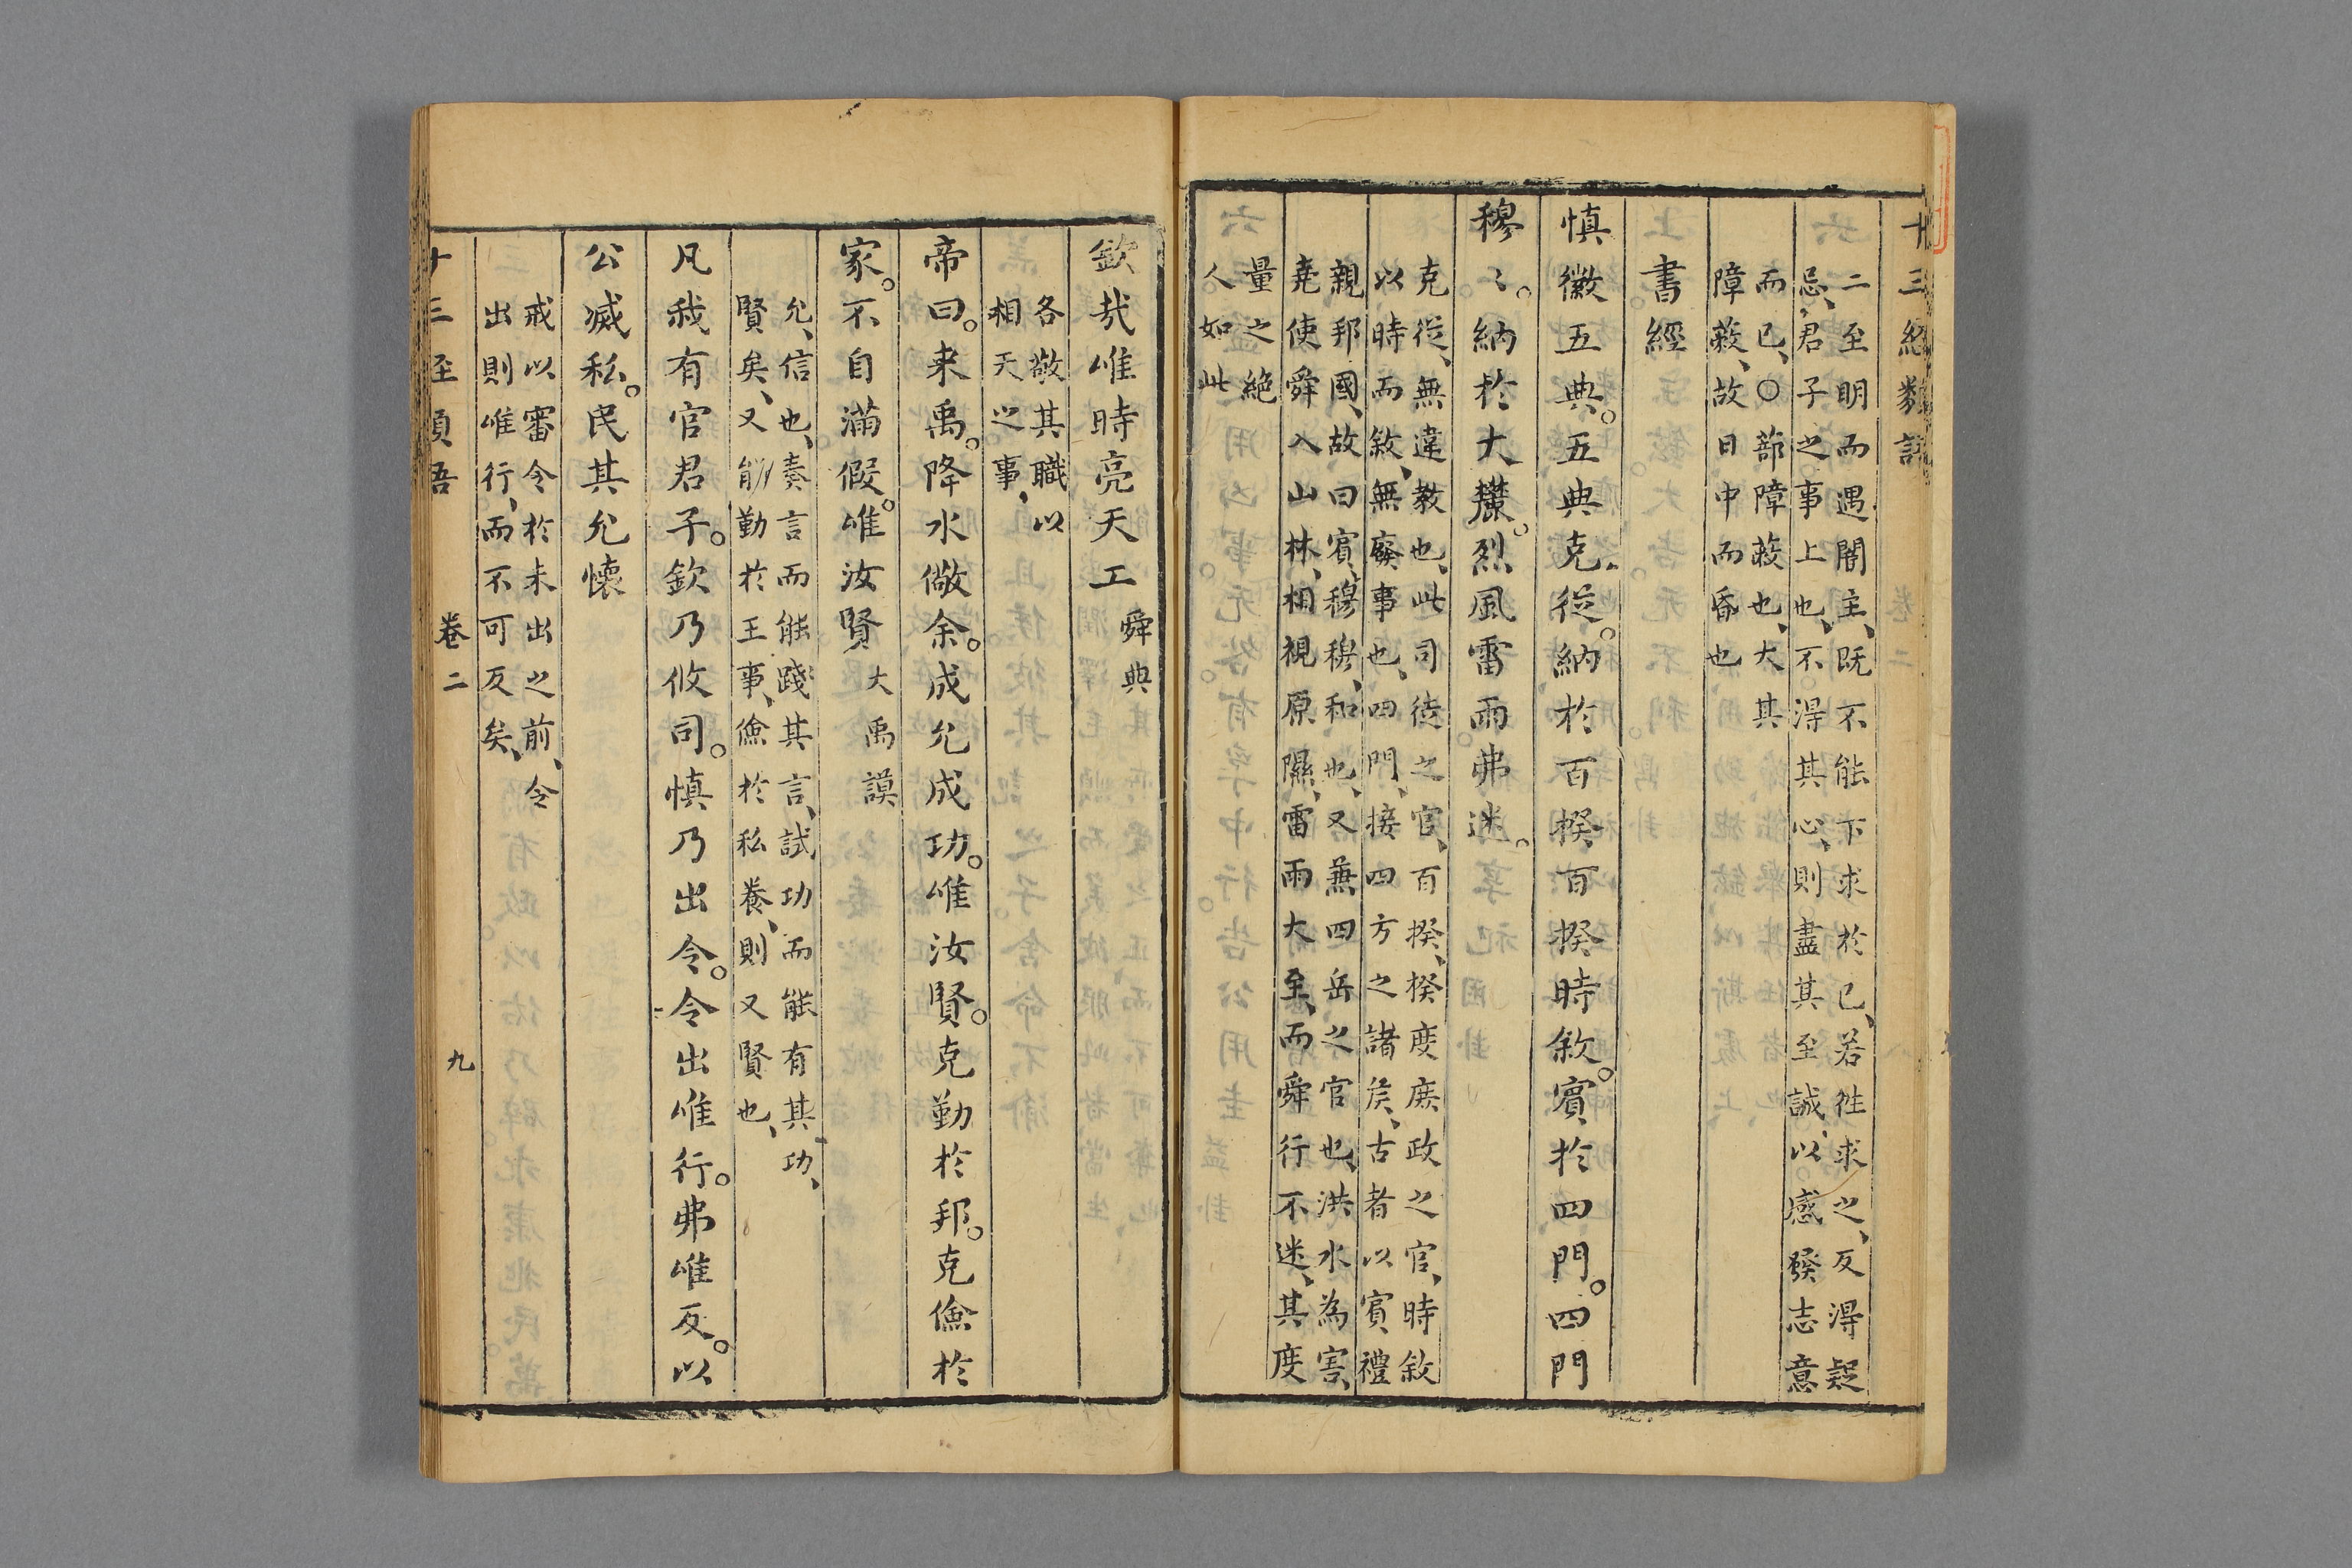 十三經類語
二至明而遇闇主、既不能下求於已、若徃求之、反淂疑
忌、君子之事上也、不淂其心、則盡其至誠、以感發志意
而已、○蔀障蔽也、大其
障蔽、故日中而昏也
書經
慎徽五典。五典克從。納於百揆百揆時敘。賓於四門。四門
穆〻。納於大麓。烈風雷雨弗迷。
克從、無違教也、此司徒之官、百揆、揆度庶政之官、時敘
以時而敘、無廢事也、四門、接四方之諸矦、古者以賓禮
親邦國、故曰賓、穆穆、和也、又兼四岳之官也、洪水為害、
堯使舜入山林、相視原隰、雷雨大至、而舜行不迷、其度
量之絕
人如此
欽㢤唯時亮天工 舜典
各敬其職以
相天之事、
帝曰。来禹。降水儆余。成允成功。唯汝賢。克勤於邦。克儉於
家。不自滿假。唯汝賢 大禹謨
允、信也、奏言而能踐其言、試功而能有其功、
賢矣、又能勤於王事、儉於私養、則又賢也、
凡我有官君子。欽乃攸司。慎乃出令。令出唯行。弗唯反。以
公滅私。民其允懷
戒以審令於未出之前、令
出則唯行、而不可反矣、
卷二 九